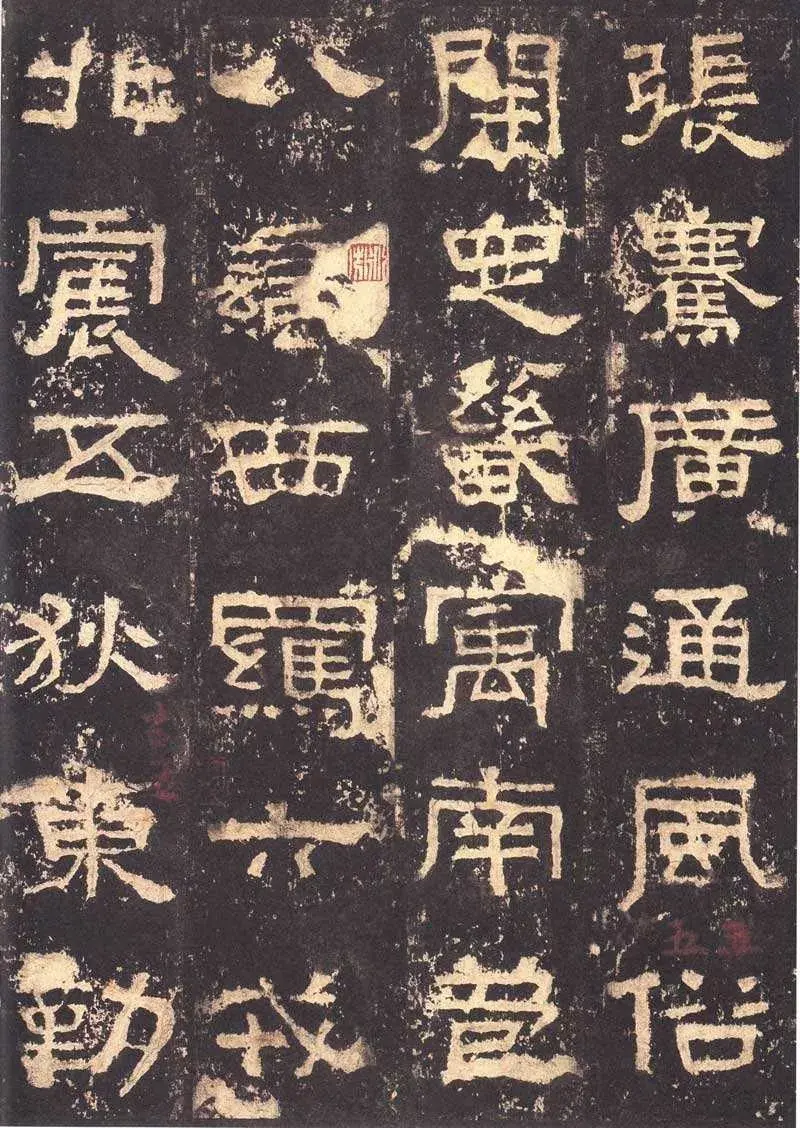 張騫廣通風俗
開定畿寓南苞
八蠻西羈六戎
北震五狄東勤